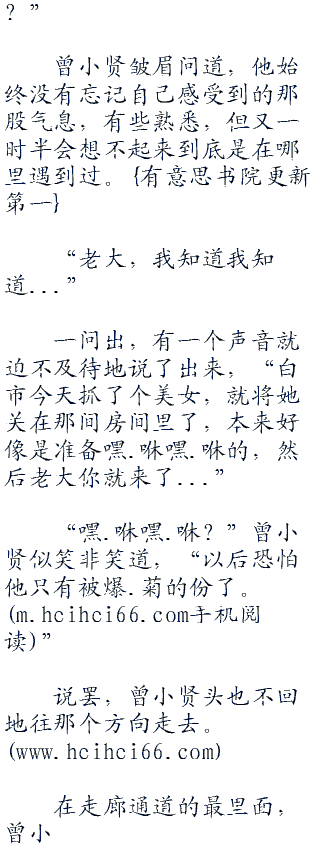 ？”
曾小贤皱眉问道，他始
终没有忘记自己感受到的那
股气息，有些熟悉，但又一
时半会想不起来到底是在哪
里遇到过。{有意思书院更新
第一}
“老大，我知道我知
道...”
一问出，有一个声音就
迫不及待地说了出来，“白
市今天抓了个美女，就将她
关在那间房间里了，本来好
像是准备嘿.咻嘿.咻的，然
后老大你就来了...”
“嘿.咻嘿.咻？”曾小
贤似笑非笑道，“以后恐怕
他只有被爆.菊的份了。
(m.hcihci66.com手机阅
读)”
说罢，曾小贤头也不回
地往那个方向走去。
(www.hcihci66.com)
在走廊通道的最里面，
曾小